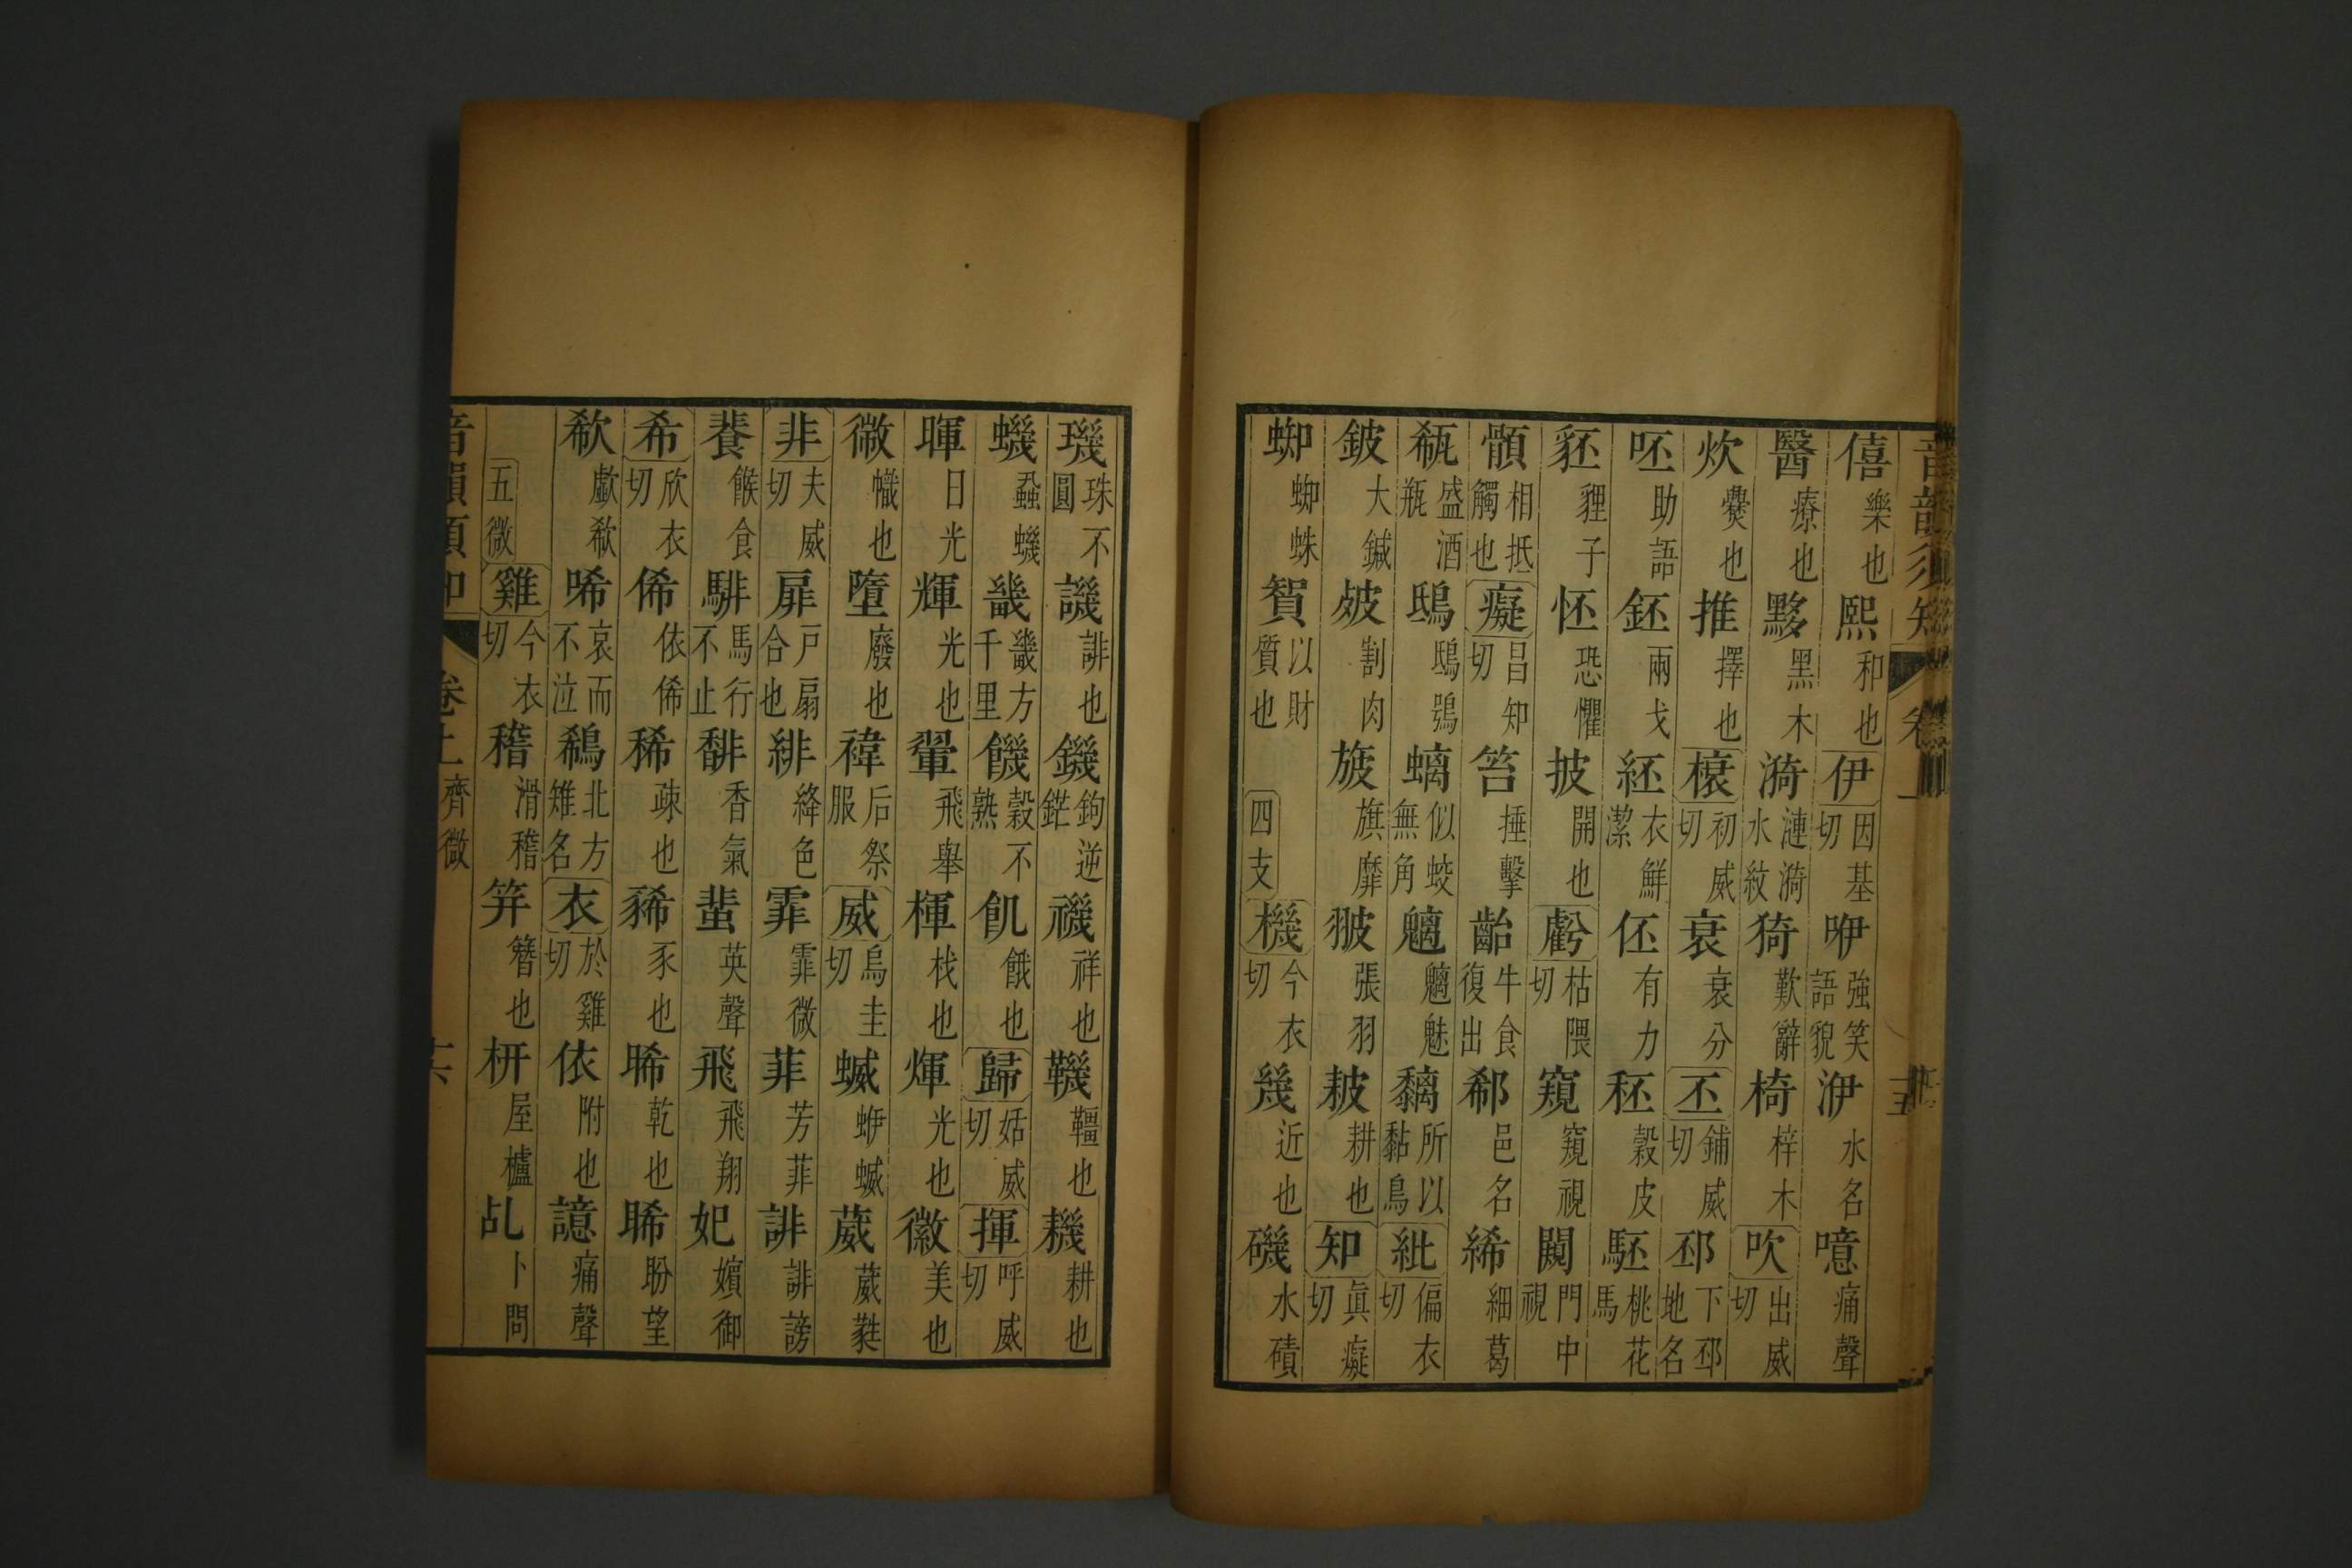 音韻須知 卷上 十五
僖樂也熙和也伊因基切咿強笑語貌洢水名噫痛聲
醫療也黟黑木漪漣漪水紋猗歎辭椅梓木吹出威切
炊爨也推擇也榱初威切衰衰分丕鋪威切邳下邳地名
呸助語鉟兩戈紑衣鮮潔伾有力秠穀皮駓桃花馬
豾貍子怌恐懼披開也虧枯隈切窺窺視闚門中視
䫏相抵觸也癡昌知切笞捶擊齝牛食復出郗邑名絺細葛
瓻盛酒瓶鴟鴟鴞螭似蛟無角魑魑魅黐所以黏鳥紕偏衣切
鈹大鍼㱟割肉旇旗靡翍張羽耚耕也知眞癡切
蜘蜘蛛䝷以財質也 四支 機今衣切幾近也磯水磧
璣珠不圓譏誹也鐖鉤逆鋩禨祥也鞿韁也𦓹耕也
蟣蝨蟣畿畿方千里饑穀不熟飢餓也歸姑威切揮呼威切
暉日光輝光也翬飛舉楎栈也煇光也徽美也
幑幟也墮廢也褘后祭服威烏圭切蝛蛜蝛葳葳蕤
非夫威切扉戶扇合也緋絳色霏霏微菲芳菲誹誹謗
餥餱食騑馬行不止馡香氣蜚英聲飛飛翔妃嬪御
希欣衣切俙依俙稀疎也豨豕也晞乾也睎盼望
欷歔欷唏哀而不泣鵗北方雉名衣於雞切依附也譩痛聲
五微 雞今衣切稽滑稽笄簪也枅屋櫨乩卜問
音韻須知 卷上 齊微 十六